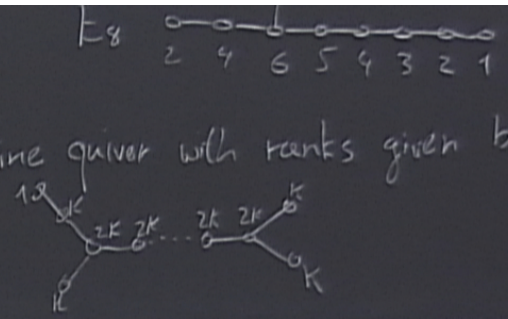 E8
2 4 6 5 4 3 2 1
quiver with ranks given
1 K
2K 2K 2K 2K K
K K